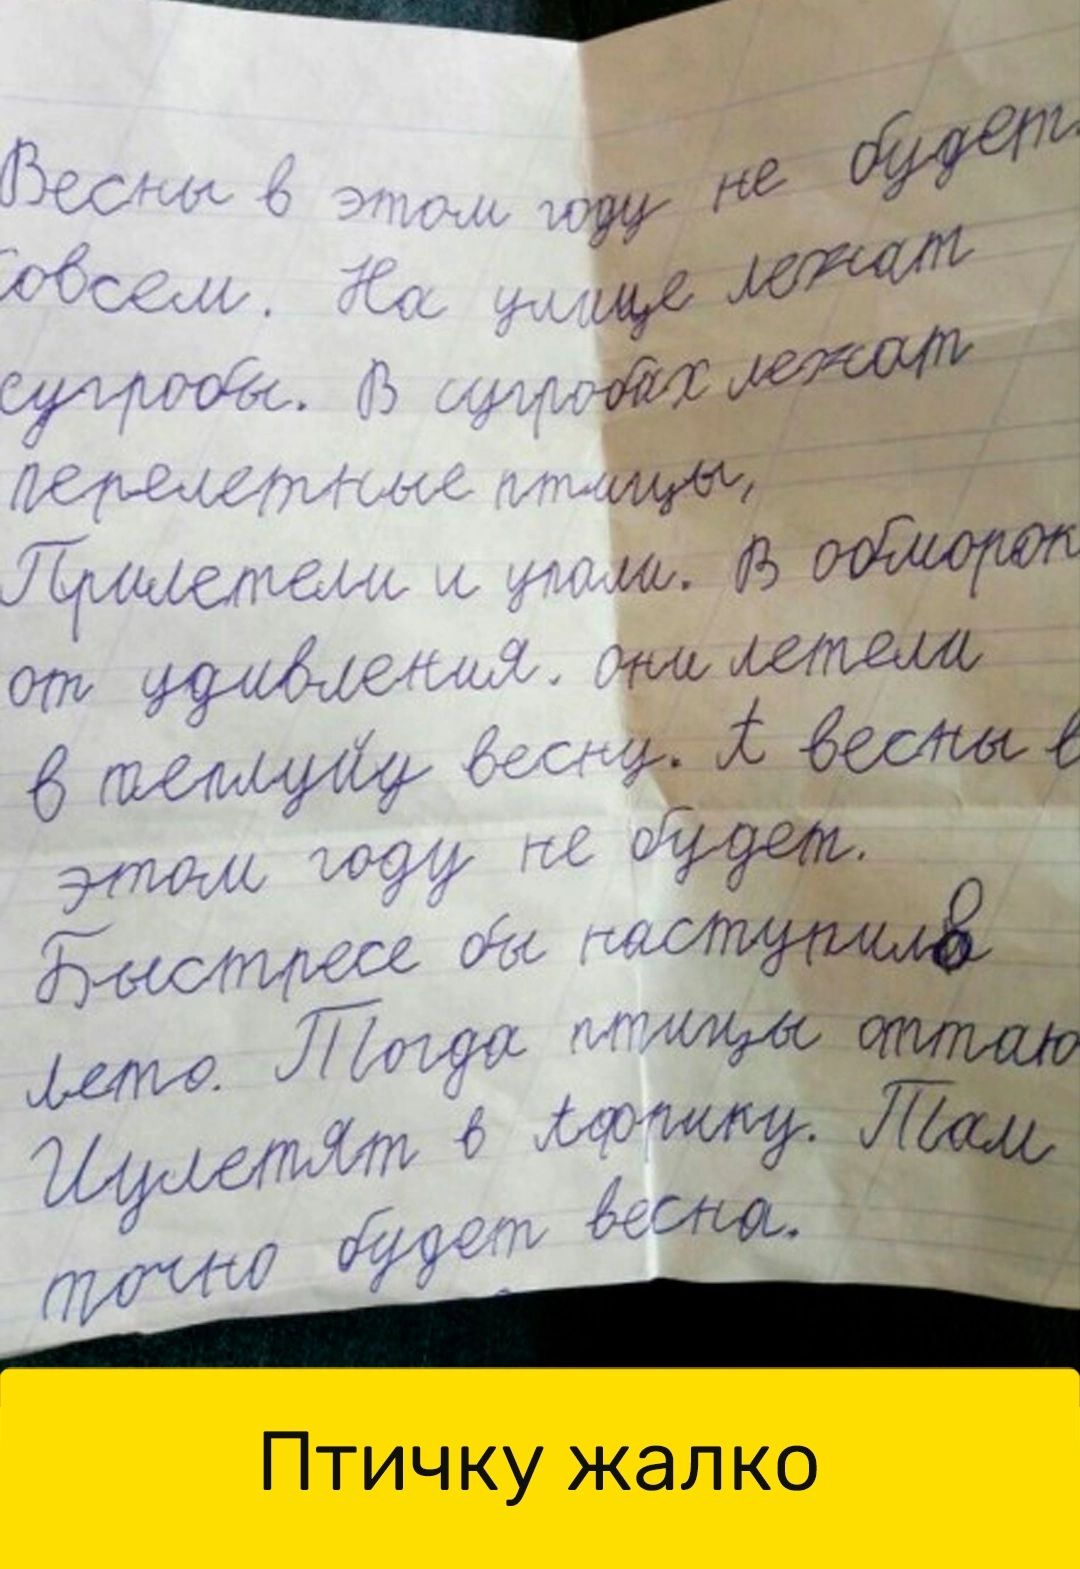 Весны в этом году не будет.
Совсем. На улице лежат
сугробы. В сугробах лежат
перелетные птицы,
Прилетели и упали. В обморок
от удивления. они летели
в теплуйу весну. А весны в
этом году не будет.
Быстресе бы наступило
лето. Тогда птицы оттаю
И улетят в Африку. Там
точно будет весна.
Птичку жалко